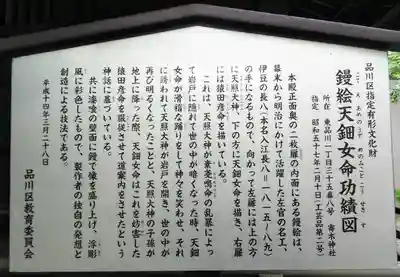 品川区指定有形文化財
鏝絵天鈿女命功績図
所在 東品川一丁目三十五番八号 寄木神社
指定 昭和五十七年二月十日(工芸品第二号)
本殿正面奥の二枚扉の内面にある鏝絵は、
幕末から明治にかけて活躍した左官の名工、
伊豆の長八(本名入江長八=一八一五~八九)
の手になるもので、向かって左扉には上の方
に天照大神、下の方に天鈿女命を描き、右扉
には猿田彦命を描いている。
これは、天照大神が素戔嗚命の乱暴によっ
て岩戸に隠れて世の中が暗くなった時、天鈿
女命が滑稽な踊りをして神々を笑わせ、それ
に誘われて天照大神が岩戸を開き、世の中が
再び明るくなったことと、天照大神の子孫が
地上に降った際、天鈿女命はこれを妨害した
猿田彦命を服従させて道案内をさせたという
神話に基づいている。
共に漆喰の壁面に鏝で像を盛り上げ、浮彫
風に彩色したもので、製作者の独自の発想と
創造による技法である。
平成十四年三月二十八日
品川区教育委員会